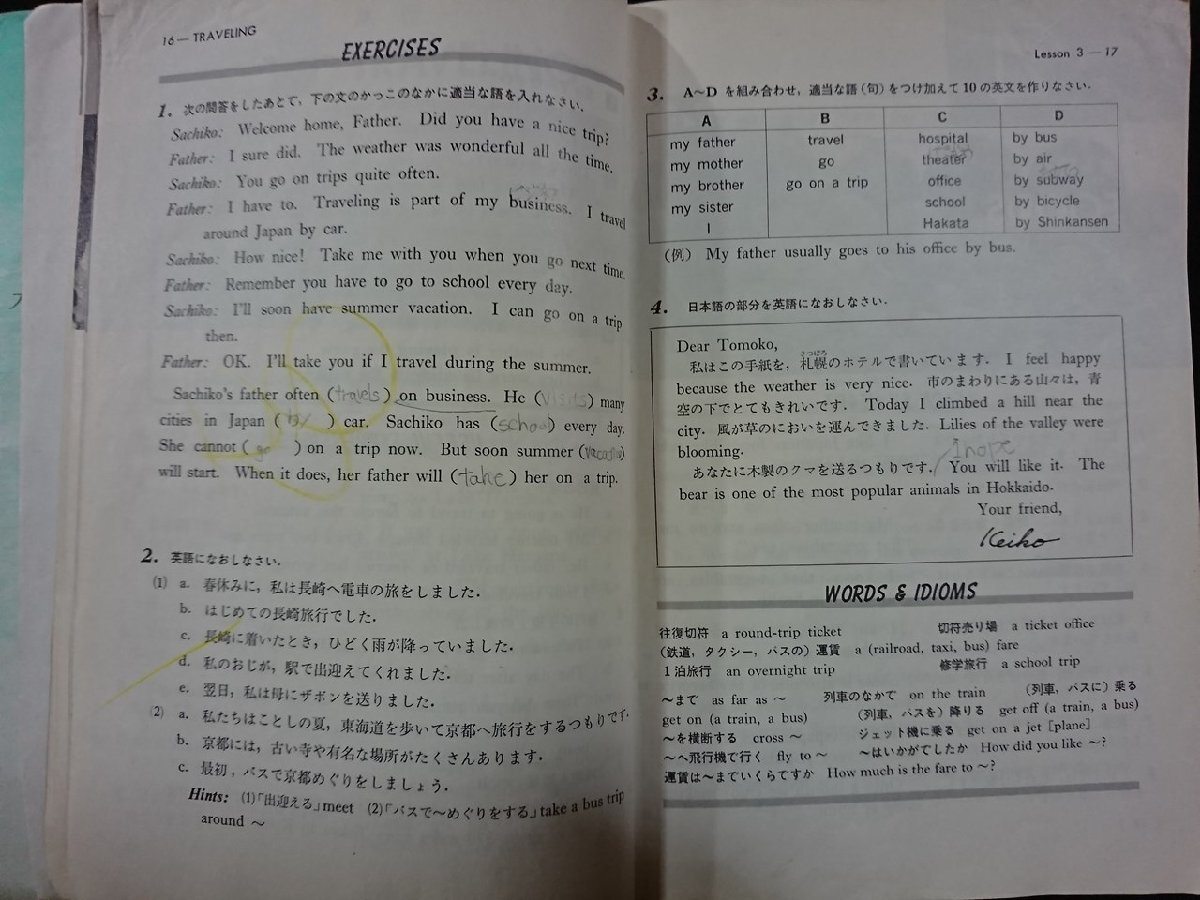 16 — TRAVELING
EXERCISES
1. 次の問答をしたあとで，下の文のかっこのなかに適当な語を入れなさい．
Sachiko: Welcome home, Father. Did you have a nice trip?
Father: I sure did. The weather was wonderful all the time.
Sachiko: You go on trips quite often.
Father: I have to. Traveling is part of my business. I travel
around Japan by car.
Sachiko: How nice! Take me with you when you go next time.
Father: Remember you have to go to school every day.
Sachiko: I'll soon have summer vacation. I can go on a trip
then.
Father: OK. I'll take you if I travel during the summer.
Sachiko's father often (travels) on business. He (visits) many
cities in Japan (by) car. Sachiko has (school) every day.
She cannot (go) on a trip now. But soon summer (vacation)
will start. When it does, her father will (take) her on a trip.
2. 英語になおしなさい．
(1) a. 春休みに，私は長崎へ電車の旅をしました．
b. はじめての長崎旅行でした．
c. 長崎に着いたとき，ひどく雨が降っていました．
d. 私のおじが，駅で出迎えてくれました．
e. 翌日，私は母にザボンを送りました．
(2) a. 私たちはことしの夏，東海道を歩いて京都へ旅行をするつもりで
b. 京都には，古い寺や有名な場所がたくさんあります．
c. 最初，バスで京都めぐりをしましょう．
Hints: (1)「出迎える」meet (2)「バスで〜めぐりをする」take a bus trip
around 〜
Lesson 3 — 17
3. A〜D を組み合わせ，適当な語（句）をつけ加えて 10 の英文を作りなさい．
A B C D
my father travel hospital by bus
my mother go theater by air
my brother go on a trip office by subway
my sister school by bicycle
I Hakata by Shinkansen
（例） My father usually goes to his office by bus.
4. 日本語の部分を英語になおしなさい．
Dear Tomoko,
さっぽろ
私はこの手紙を，札幌のホテルで書いています． I feel happy
because the weather is very nice. 市のまわりにある山々は，青
空の下でとてもきれいです． Today I climbed a hill near the
city. 風が草のにおいを運んできました． Lilies of the valley were
blooming.
I hope
あなたに木製のクマを送るつもりです． You will like it. The
bear is one of the most popular animals in Hokkaido.
Your friend,
Keiko
WORDS & IDIOMS
往復切符 a round-trip ticket 切符売り場 a ticket office
（鉄道，タクシー，バスの）運賃 a (railroad, taxi, bus) fare
1泊旅行 an overnight trip 修学旅行 a school trip
〜まで as far as 〜 列車のなかで on the train （列車，バスに）乗る
get on (a train, a bus) （列車，バスを）降りる get off (a train, a bus)
〜を横断する cross 〜 ジェット機に乗る get on a jet [plane]
〜へ飛行機で行く fly to 〜 〜はいかがでしたか How did you like 〜?
運賃は〜までいくらですか How much is the fare to 〜?